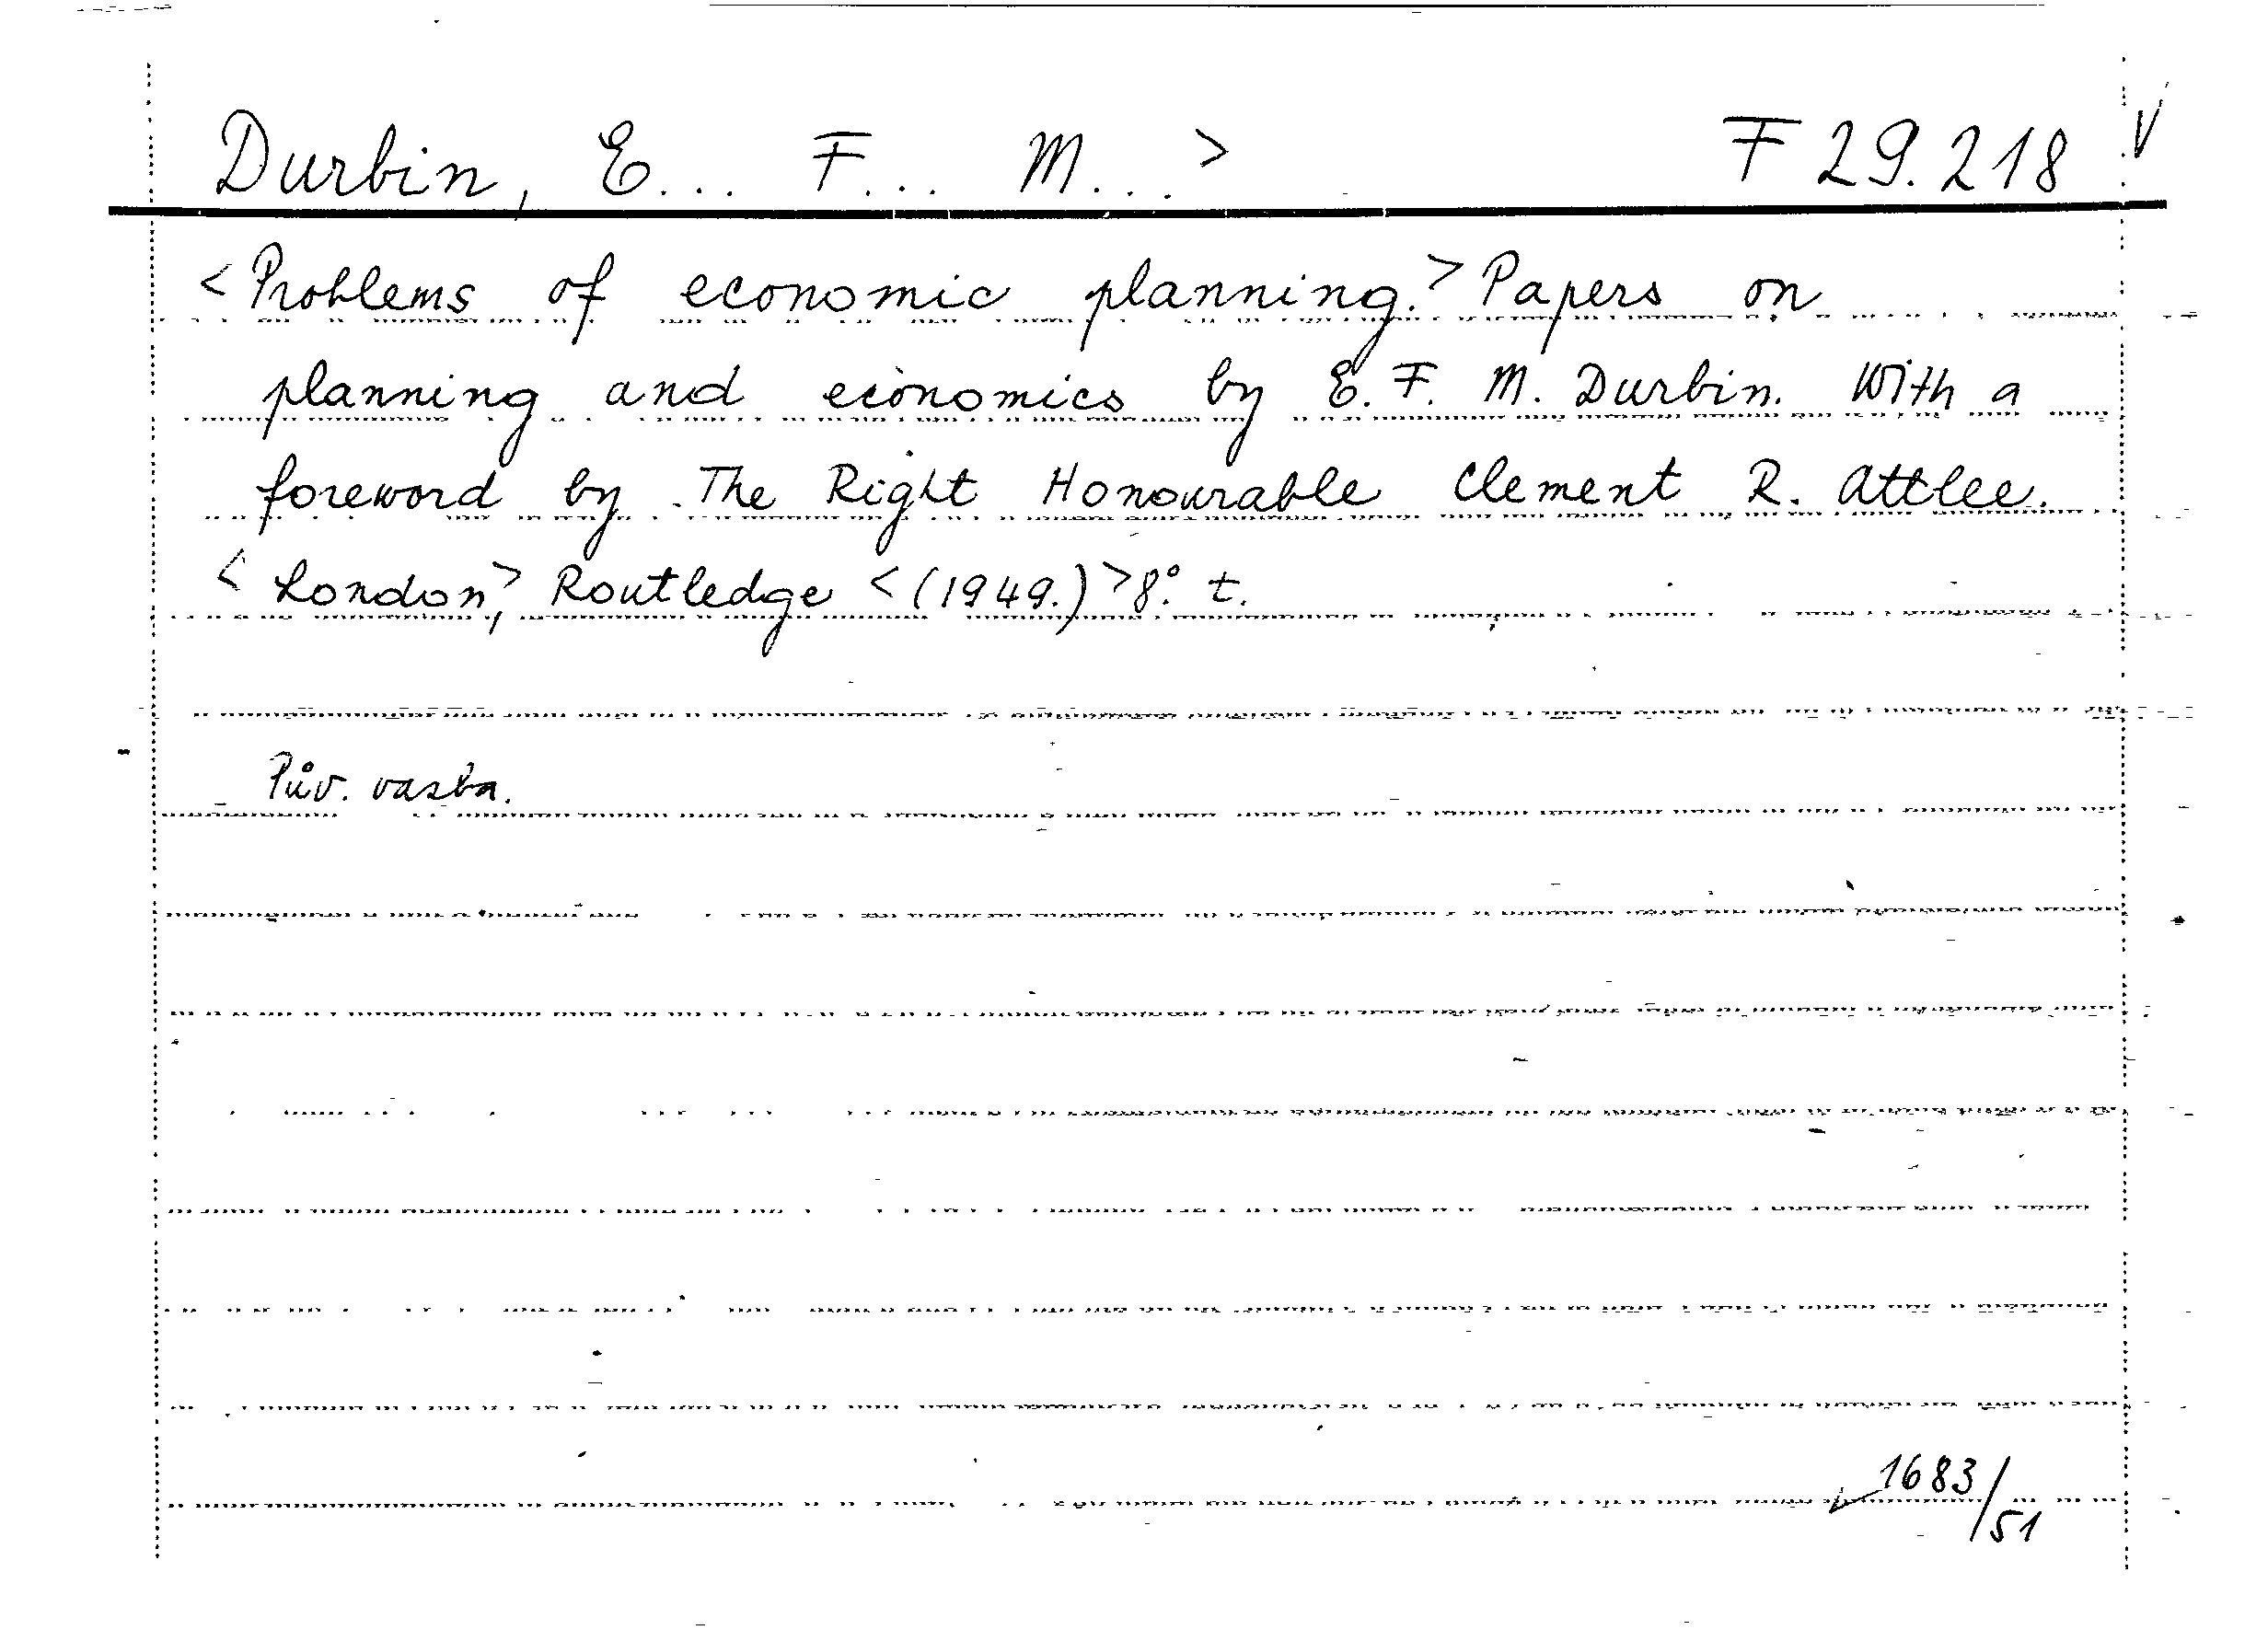 Durbin, E... F... M...> F 29.218 V
<Problems of economic planning.> Papers on
planning and economics by E. F. M. Durbin. With a
foreword by The Right Honourable Clement R. Attlee.
<London,> Routledge <(1949.)> 8°. t.
Pův. vazba.
1683/51